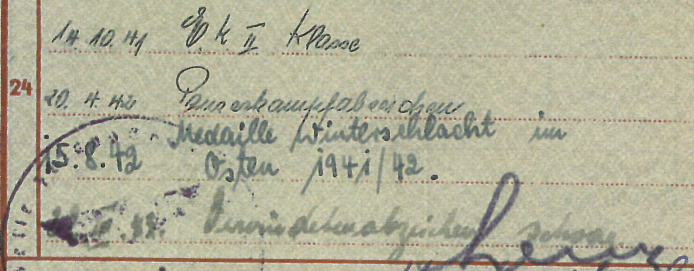 14.10.41 E.K II Klasse
24
20.4.42 Panzerkampfabzeichen
Medaille Winterschlacht im
15.8.42 Osten 1941/42.
Verwundetenabzeichen schwarz